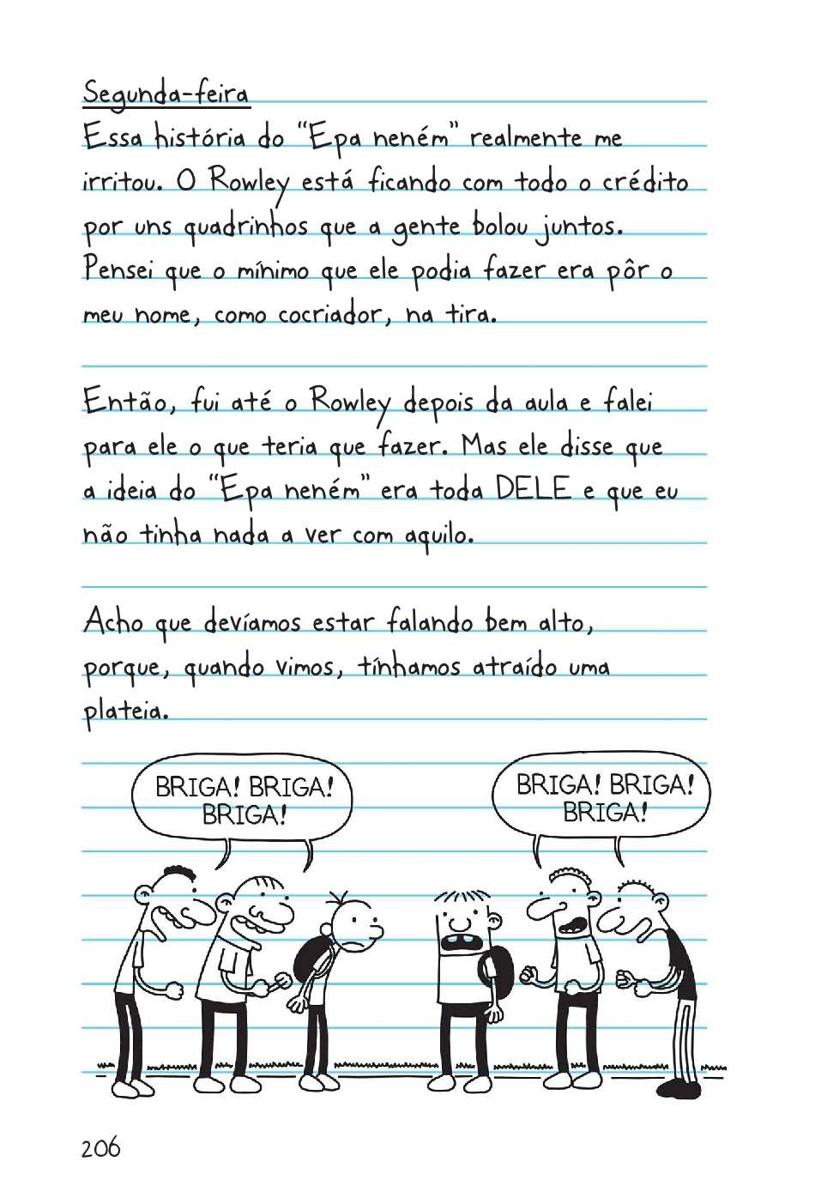 Segunda-feira
Essa história do "Epa neném" realmente me
irritou. O Rowley está ficando com todo o crédito
por uns quadrinhos que a gente bolou juntos.
Pensei que o mínimo que ele podia fazer era pôr o
meu nome, como cocriador, na tira.
Então, fui até o Rowley depois da aula e falei
para ele o que teria que fazer. Mas ele disse que
a ideia do "Epa neném" era toda DELE e que eu
não tinha nada a ver com aquilo.
Acho que devíamos estar falando bem alto,
porque, quando vimos, tínhamos atraído uma
plateia.
BRIGA! BRIGA!
BRIGA!
BRIGA! BRIGA!
BRIGA!
206